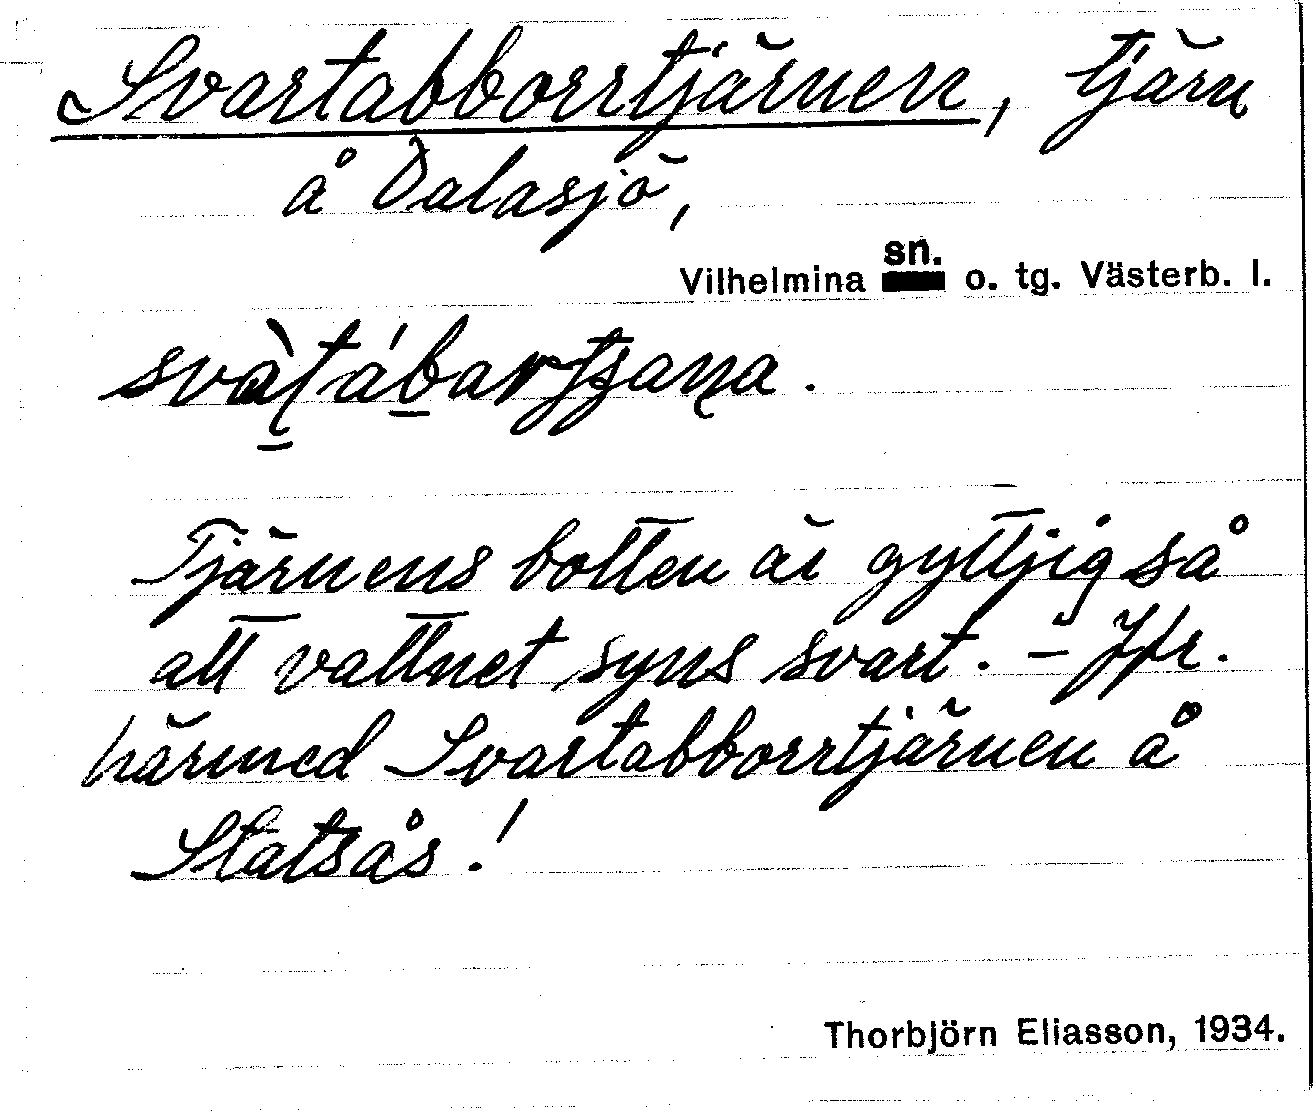 Svartabborrtjärnen, tjärn
å Dalasjö,
Vilhelmina sn. o. tg. Västerb. l.
Tjärnens botten är gyttjig så
att vattnet syns svart. – Jfr.
härmed Svartabborrtjärnen å
Statsås!
Thorbjörn Eliasson, 1934.